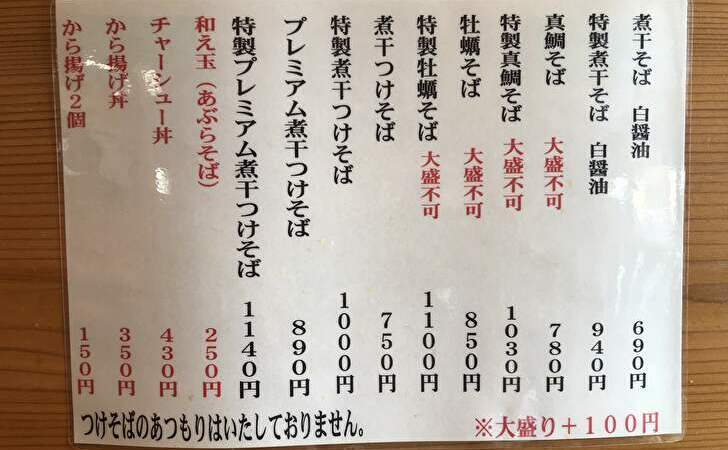 煮干そば 白醤油 690円
特製煮干そば 白醤油 940円
真鯛そば 大盛不可 780円
特製真鯛そば 大盛不可 1030円
牡蠣そば 大盛不可 850円
特製牡蠣そば 大盛不可 1100円
煮干つけそば 750円
特製煮干つけそば 1000円
プレミアム煮干つけそば 890円
特製プレミアム煮干つけそば 1140円
和え玉（あぶらそば） 250円
チャーシュー丼 430円
から揚げ丼 350円
から揚げ2個 150円
※大盛り＋100円
つけそばのあつもりはいたしておりません。